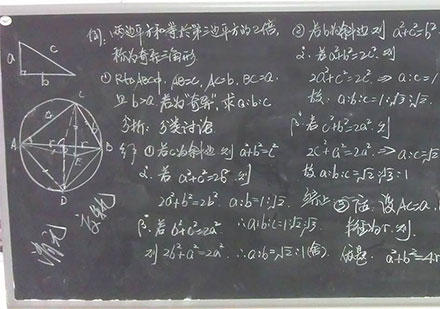 a
c
b
例: 两边平方和等于第三边平方的2倍,
称为奇异三角形
① Rt△ABC中, AB=c, AC=b, BC=a.
且 b>a. 若为“奇异”, 求 a:b:c
分析: 分类讨论
① 若c为斜边 则 a²+b²=c²
α. 若 a²+c²=2b². 则
2a²+b²=2b². a:b=1:√2.
β. 若 b²+c²=2a²
∴a:b:c=1:√2:√3.
则 2b²+a²=2a² ∴a:b=√2:1(舍)
C
A
B
D
E
② 若b为斜边 则 a²+c²=b²
α. 若 a²+b²=2c². 则
2a²+c²=2c² ⇒ a:c=1
故: a:b:c=1:√2:√3
β. 若 c²+b²=2a². 则
2c²+a²=2a² ⇒ a:c=√2
故 a:b:c=√2:√3:1
综上
设AC=a.
则.
a²+b²=4r